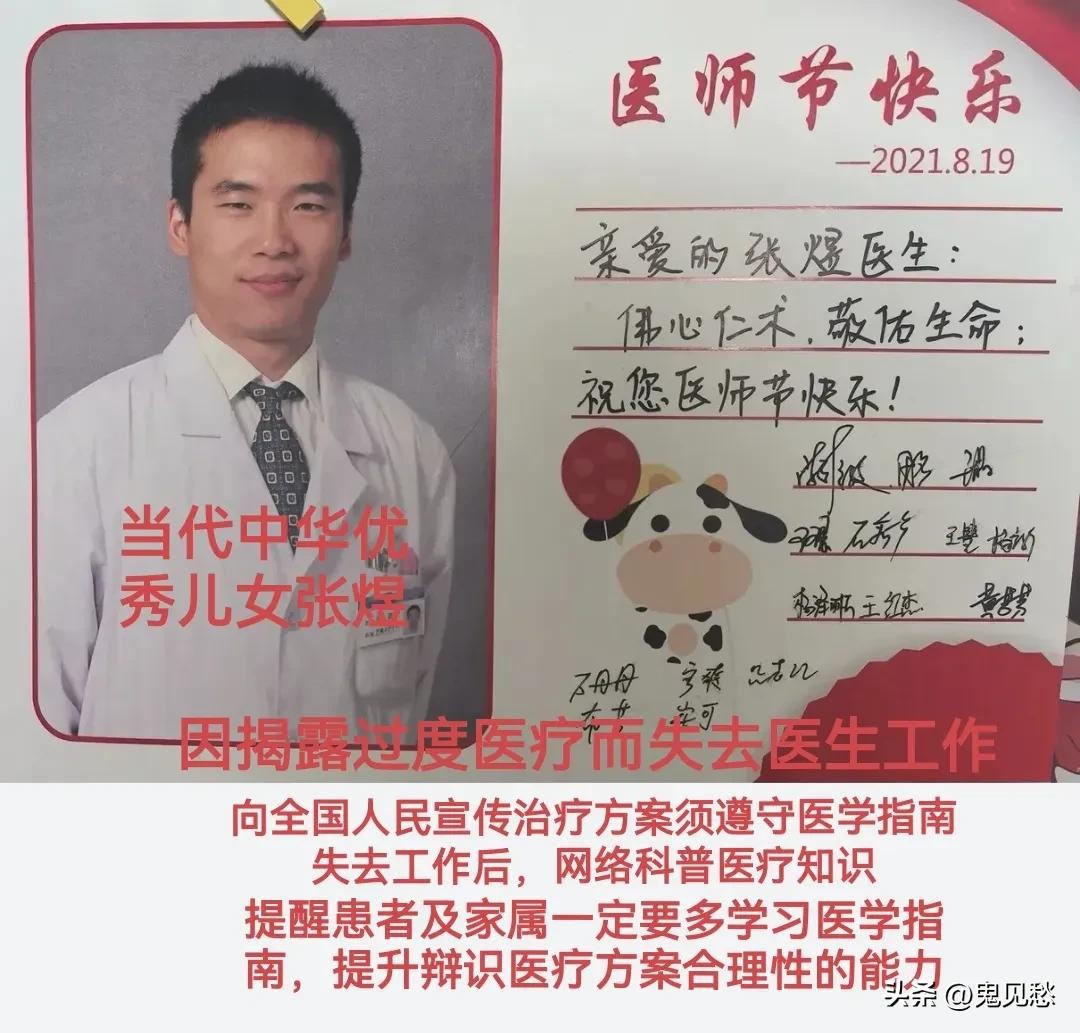 医师节快乐
—2021.8.19
亲爱的张煜医生:
佛心仁术,敬佑生命;
祝您医师节快乐!
石丹丹
当代中华优
秀儿女张煜
因揭露过度医疗而失去医生工作
向全国人民宣传治疗方案须遵守医学指南
失去工作后,网络科普医疗知识
提醒患者及家属一定要多学习医学指
南,提升辩识医疗方案合理性的能力
头条 @鬼见愁